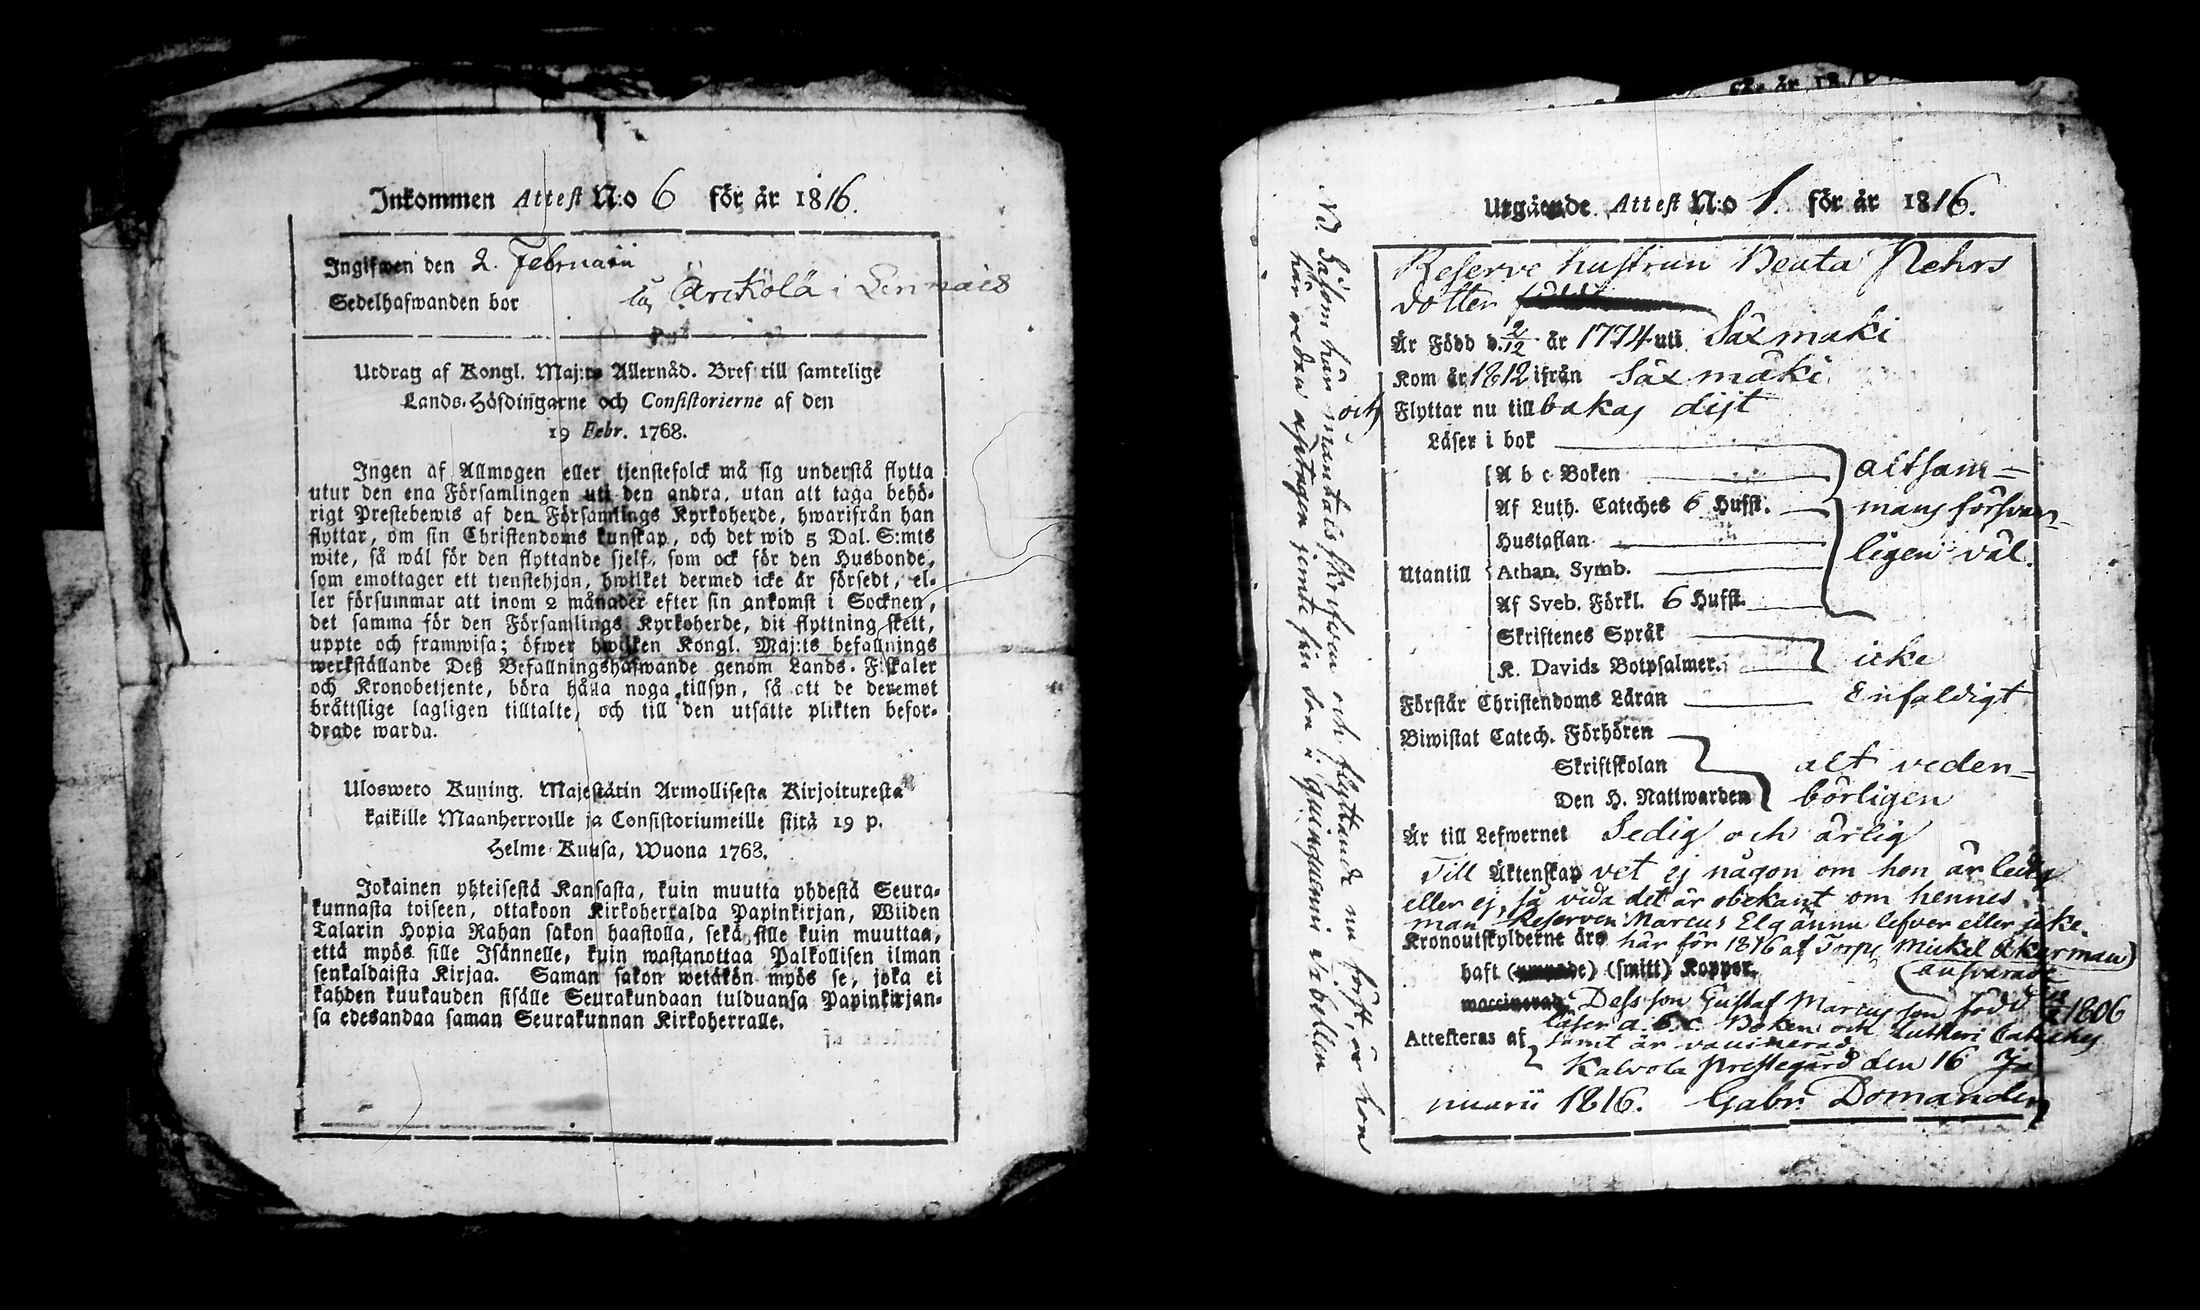 Inkommen Attest N:o 6 för år 1816.
Ingifwen den 2. Februarii
Sedelhafwanden bor på Äreköla i
Utdrag af Kongl. Maj:ts Allernåd. Bref till samtelige
Lands-Höfdingarne och Consistorierne af den
19 Febr. 1768.
Ingen af Allmogen eller tjenstefolck må sig understå flytta
utur den ena Församlingen uti den andra, utan att taga behö-
rigt Prestebewis af den Församlings Kyrkoherde, hwarifrån han
flyttar, om sin Christendoms kunskap, och det wid 5 Dal. S:mts
wite, så wäl för den flyttande sjelf, som ock för den Husbonde,
som emottager ett tjenstehjon, hwilket dermed icke är försedt, el-
ler försummar att inom 2 månader efter sin ankomst i Socknen,
det samma för den Församlings Kyrkoherde, dit flyttning skett,
uppte och framwisa; öfwer hwilken Kongl. Maj:ts befallnings
werkställande Deß Befallningshafwande genom Lands-Fiskaler
och Kronobetjente, böra hålla noga tillsyn, så att de deremot
bråttslige lagligen tilltalte, och till den utsatte plikten befor-
drade warda.
Ulosweto Kuning. Majestätin Armollisesta Kirjoituxesta
kaikille Maanherroille ja Consistoriumeille siitä 19 p.
Helme-Kuusa, Wuona 1768.
Jokainen yhteisestä Kansasta, kuin muutta yhdestä Seura-
kunnasta toiseen, ottakoon Kirkoherralda Papinkirjan, Wiiden
Talarin Hopia Rahan sakon haastolla, sekä sille kuin muuttaa,
että myös sille Isännelle, kuin wastanottaa Palkollisen ilman
senkaldaista Kirjaa. Saman sakon wetäkön myös se, joka ei
kahden kuukauden sisälle Seurakundaan tulduansa Papinkirjan-
sa edesandaa saman Seurakunnan Kirkoherralle.
Utgående Attest N:o 1. för år 1816.
Reserve hustrun Beata Mehrs
dotter
Är Född d. 2/12 år 1774 uti Säxmäki
Kom år 1812 ifrån Säxmäki
och Flyttar nu till bakas dijt
Läser i bok
A b c Boken altsam-
Af Luth. Cateches 6 Hufst. mans försvar-
Hustaflan ligen väl.
Utantill Athan. Symb.
Af Sveb. Förkl. 6 Hufst.
Skriftenes Språk
K. Davids Botpsalmer. icke
Förstår Christendoms Läran Enfaldigt
Biwistat Catech. Förhören
Skriftskolan alt veder-
Den H. Nattwarden börligen
Är till Lefwernet Sedig och ärlig
Till Äktenskap vet ej någon om hon är ledig
eller ej, så vida det är obekant om hennes
man Reserven Marcus Elg ännu lefver eller icke
Kronoutskylderne äro här för 1816 af Torp. Mickel Åkerman
ansvarade
haft (smitt) Koppor.
Dess son Gustaf Marcusson född 1806
läser a.b.c. Boken och Lutheri Cateches
samt är vaccinerad
Attesteras af
Kalvola Prestegård den 16 Ja-
nuarii 1816. Gabr. Domander
NB Såsom här mantalsskrifven och flyttande nu först, är hon
här redan upptagen jemte sin son i Quinquenni Libellen